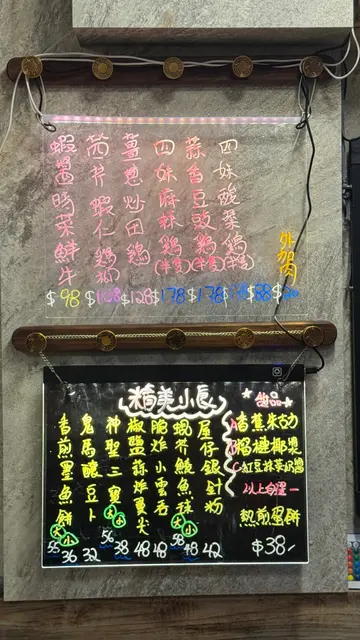 外加肉
四妹酸菜鷄(半隻)
蒜香豆豉鷄(半隻) $178
四妹麻辣鷄(半隻) $178
薑蔥炒田鷄 $128
茜芹蝦仁鷄柳 $108
蝦醬時菜鮮牛 $98
精美小食
屋仔銀針粉 42
鯪魚球 大 58 小 48
脆炸小雲吞 48
椒鹽蒜炸魷尖 48
神聖三寶 大 56 小 38
鬼馬釀豆卜 32
香煎墨魚餅 大 55 小 36
甜品
A 香蕉朱古力
B 榴槤椰漿
C 紅豆抹茶奶醬
以上自選一
熱煎蛋餅
$38-